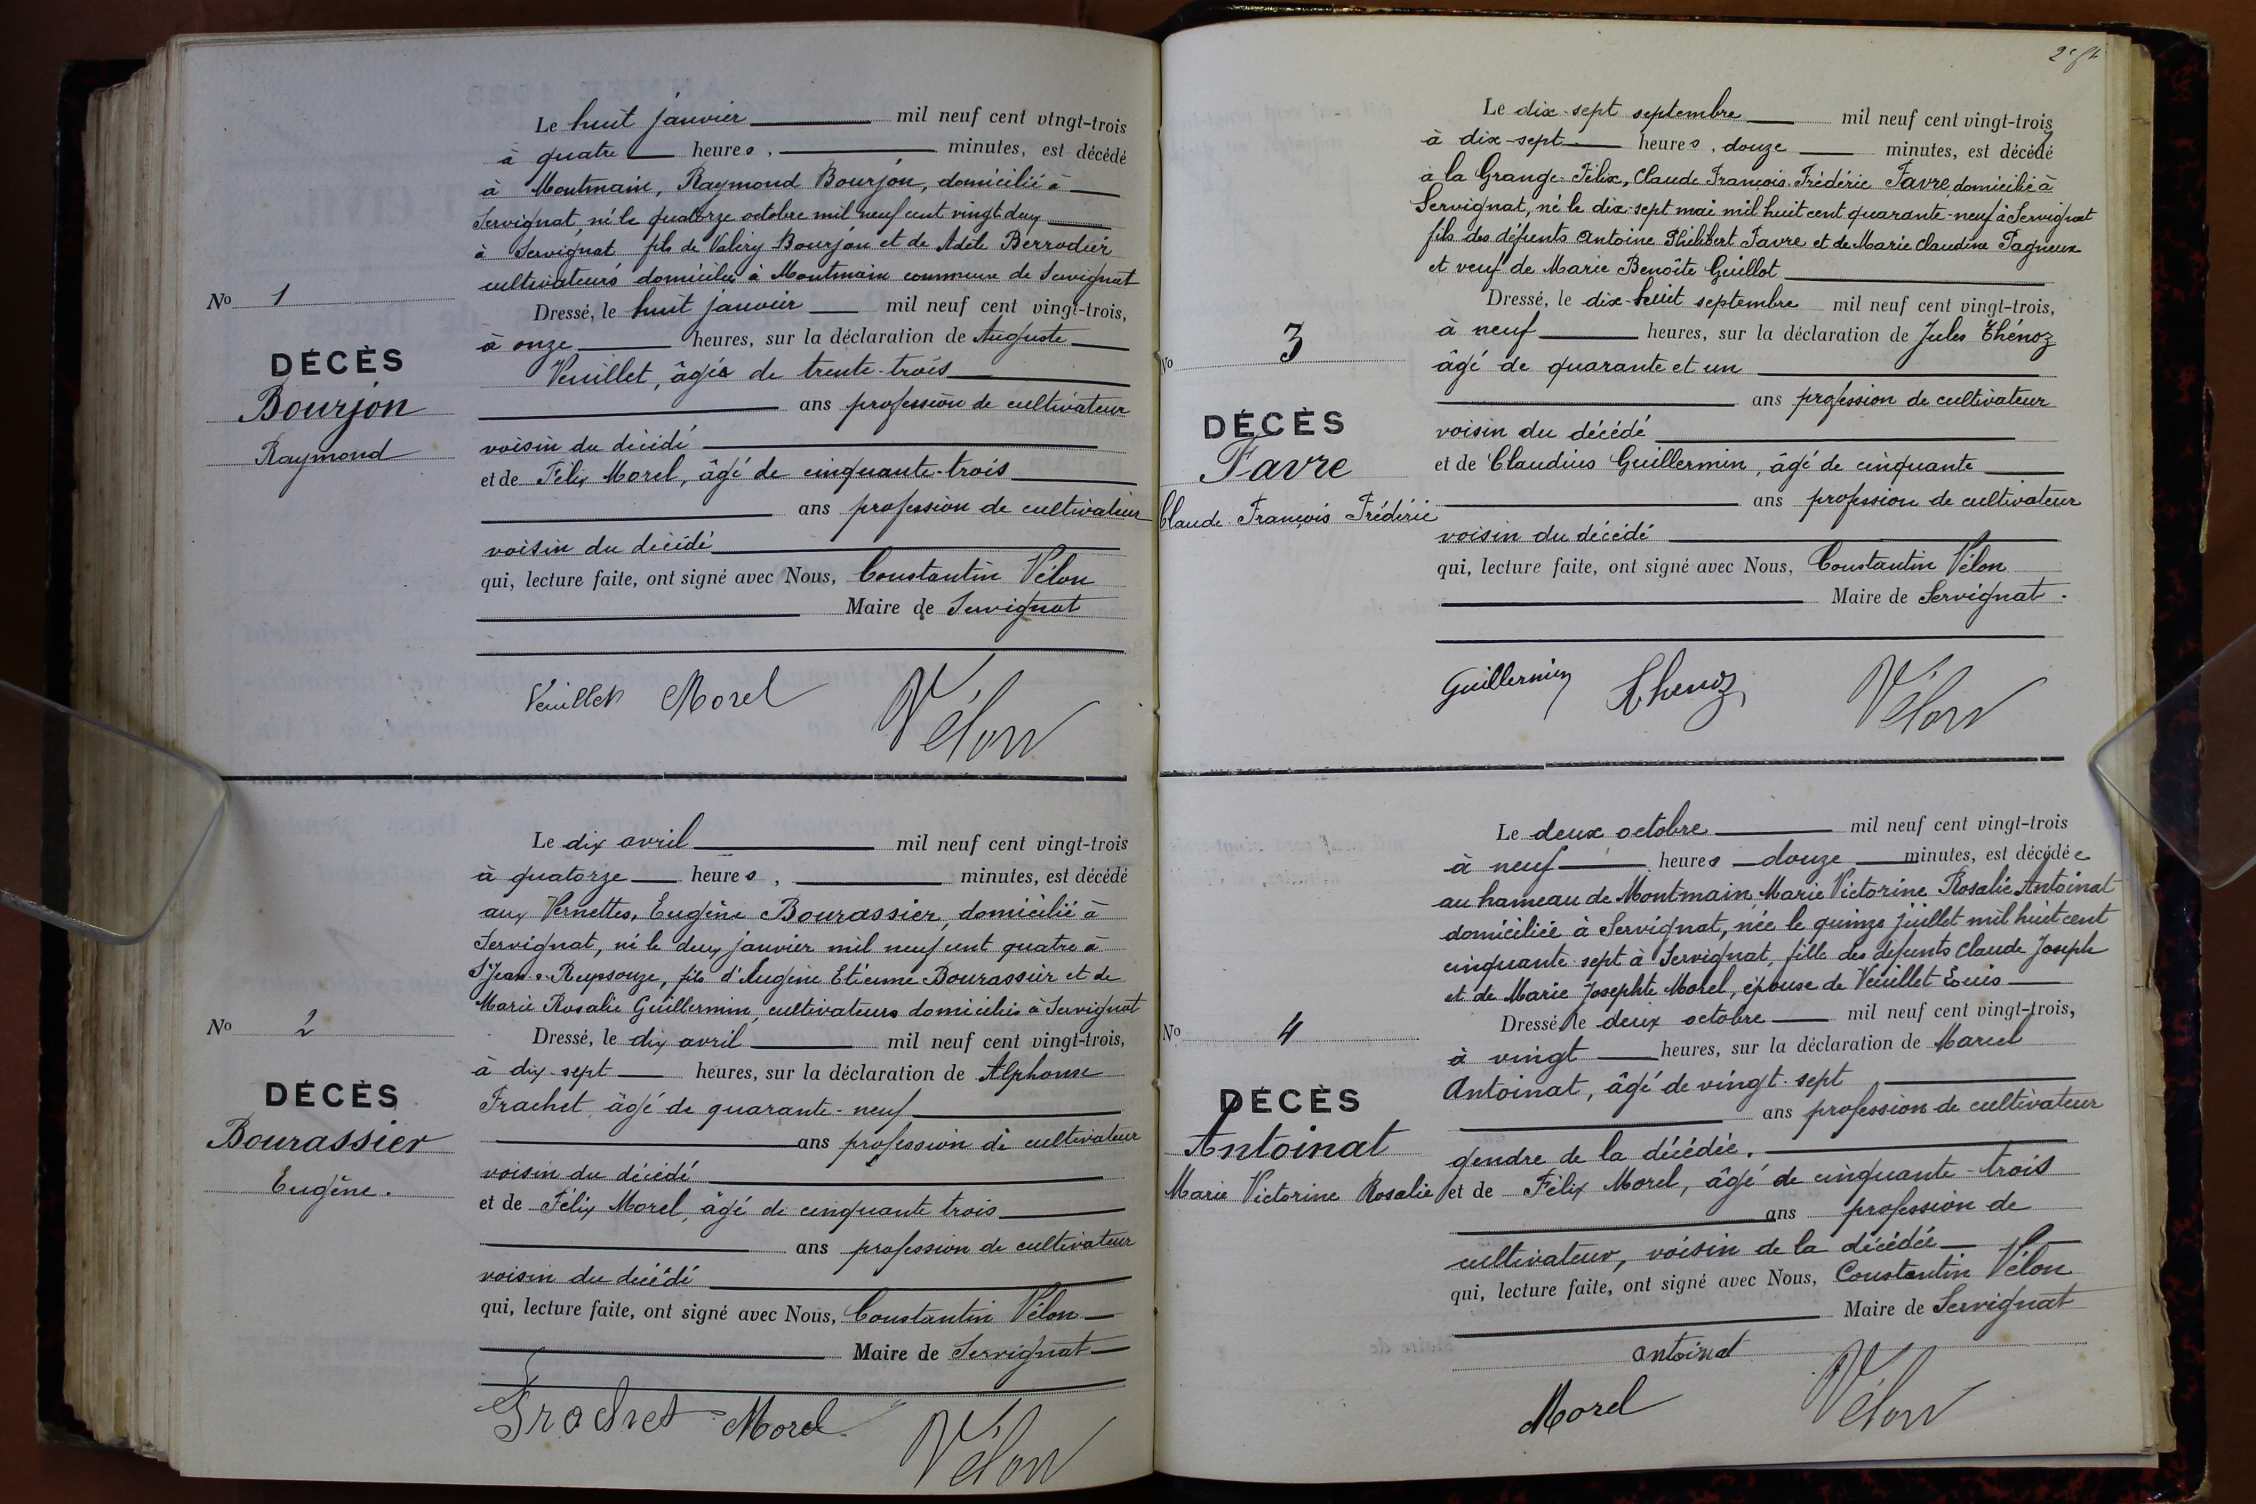 Le huit janvier mil neuf cent vingt-trois
à quatre heures, minutes, est décédé
à Montmain, Raymond Bourjon, domicilié à
Servignat, né le quatorze octobre mil neuf cent vingt deux
à Servignat fils de Valéry Bourjon et de Adèle Berrodier
cultivateurs domiciliés à Montmain commune de Servignat
Dressé, le huit janvier mil neuf cent vingt-trois,
à onze heures, sur la déclaration de Auguste
Veuillet, âgé de trente-trois
ans profession de cultivateur
voisin du décédé
et de Félix Morel, âgé de cinquante-trois
ans profession de cultivateur
voisin du décédé
qui, lecture faite, ont signé avec Nous, Constantin Vélon
Maire de Servignat
No 1
DÉCÈS
Bourjon
Raymond
Veuillet Morel Vélon
Le dix avril mil neuf cent vingt-trois
à quatorze heures, minutes, est décédé
aux Vernettes, Eugène Bourassier, domicilié à
Servignat, né le deux janvier mil neuf cent quatre à
St Jean-s-Reyssouze, fils d'Eugène Etienne Bourassier et de
Marie Rosalie Guillermin, cultivateurs domiciliés à Servignat
Dressé, le dix avril mil neuf cent vingt-trois,
à dix-sept heures, sur la déclaration de Alphonse
Frachet, âgé de quarante-neuf
ans profession de cultivateur
voisin du décédé
et de Félix Morel, âgé de cinquante trois
ans profession de cultivateur
voisin du décédé
qui, lecture faite, ont signé avec Nous, Constantin Vélon
Maire de Servignat
No 2
DÉCÈS
Bourassier
Eugène.
Frachet Morel Vélon
Le dix-sept septembre mil neuf cent vingt-trois
à dix-sept heures, douze minutes, est décédé
à la Grange-Félix, Claude François Frédéric Favre domicilié à
Servignat, né le dix-sept mai mil huit cent quarante-neuf à Servignat
fils des défunts Antoine Philibert Favre et de Marie Claudine Pagneux
et veuf de Marie Benoîte Guillot
Dressé, le dix-huit septembre mil neuf cent vingt-trois,
à neuf heures, sur la déclaration de Jules Thénoz
âgé de quarante et un
ans profession de cultivateur
voisin du décédé
et de Claudius Guillermin, âgé de cinquante
ans profession de cultivateur
voisin du décédé
qui, lecture faite, ont signé avec Nous, Constantin Vélon
Maire de Servignat.
No 3
DÉCÈS
Favre
Claude François Frédéric
Guillermin Thenoz Vélon
Le deux octobre mil neuf cent vingt-trois
à neuf heures douze minutes, est décédée
au hameau de Montmain, Marie Victorine Rosalie Antoinat
domiciliée à Servignat, née le quinze juillet mil huit cent
cinquante sept à Servignat, fille des défunts Claude Joseph
et de Marie Josephte Morel, épouse de Veuillet Louis
Dressé, le deux octobre mil neuf cent vingt-trois,
à vingt heures, sur la déclaration de Marcel
Antoinat, âgé de vingt-sept
ans profession de cultivateur
gendre de la décédée.
et de Félix Morel, âgé de cinquante-trois
ans profession de
cultivateur, voisin de la décédée
qui, lecture faite, ont signé avec Nous, Constantin Vélon
Maire de Servignat
No 4
DÉCÈS
Antoinat
Marie Victorine Rosalie
Antoinat
Morel Vélon